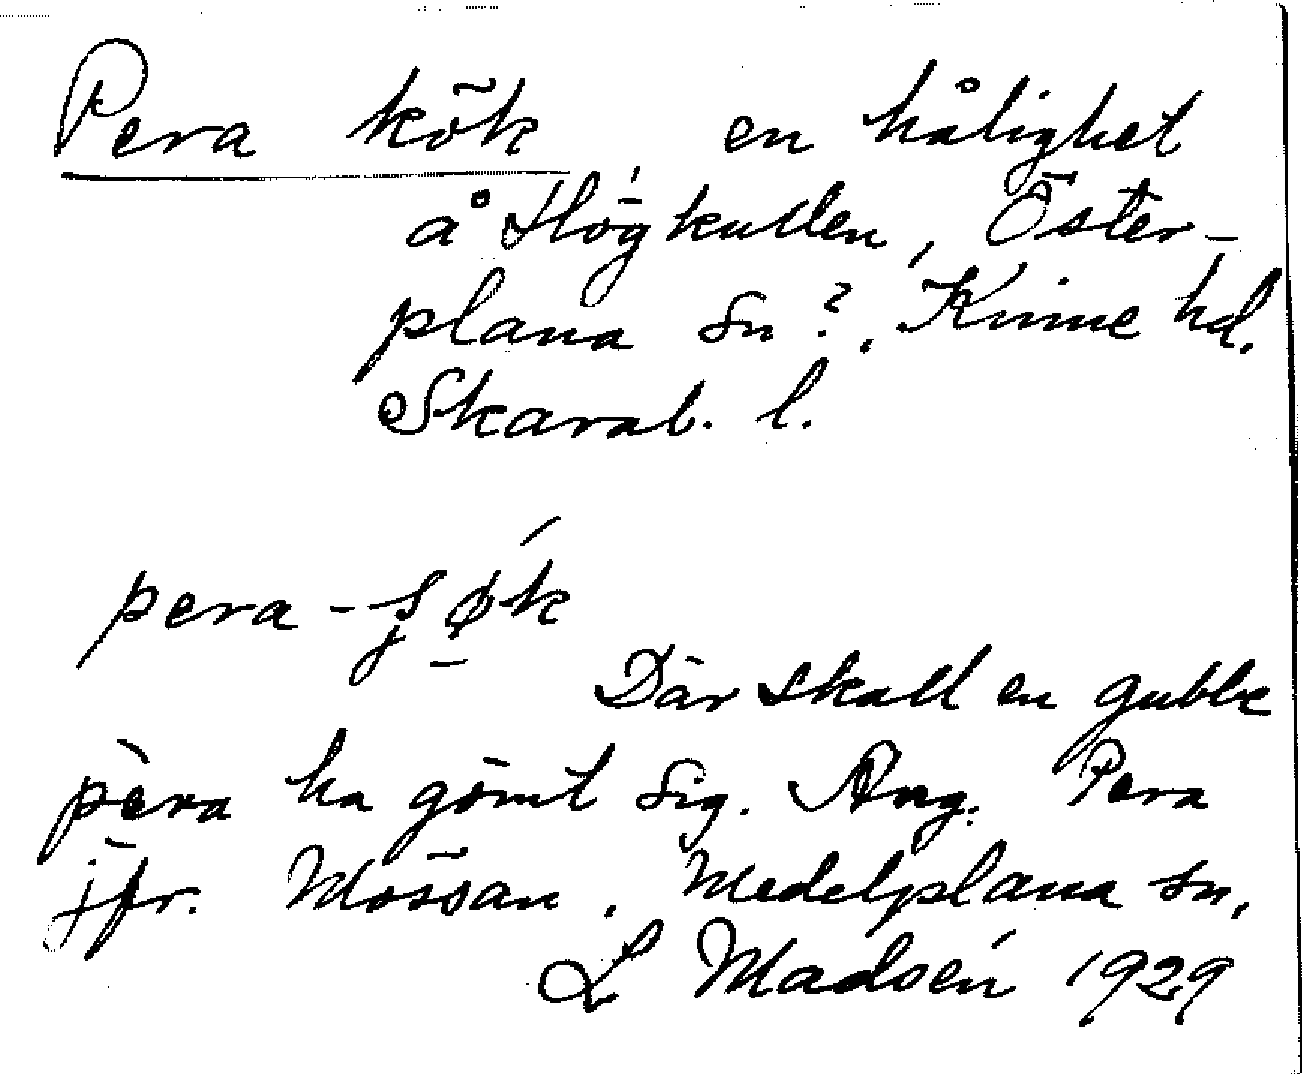 Pera kök, en hålighet
å Högkullen, Öster-
plana sn?, Kinne hd.
Skarab. l.
pera-ʂøk
Där skall en gubbe
pèra ha gömt sig. Ang. Pera
jfr. Mössan, Medelplana sn,
L Madsén 1929